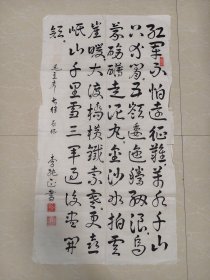 红军不怕遠征難萬水千山
只等閑五嶺逶迤騰細浪烏
蒙磅礴走泥丸金沙水拍雲
崖暖大渡橋橫鐵索寒更喜
岷山千里雪三军過後盡開
顏 毛主席七律長征 李書